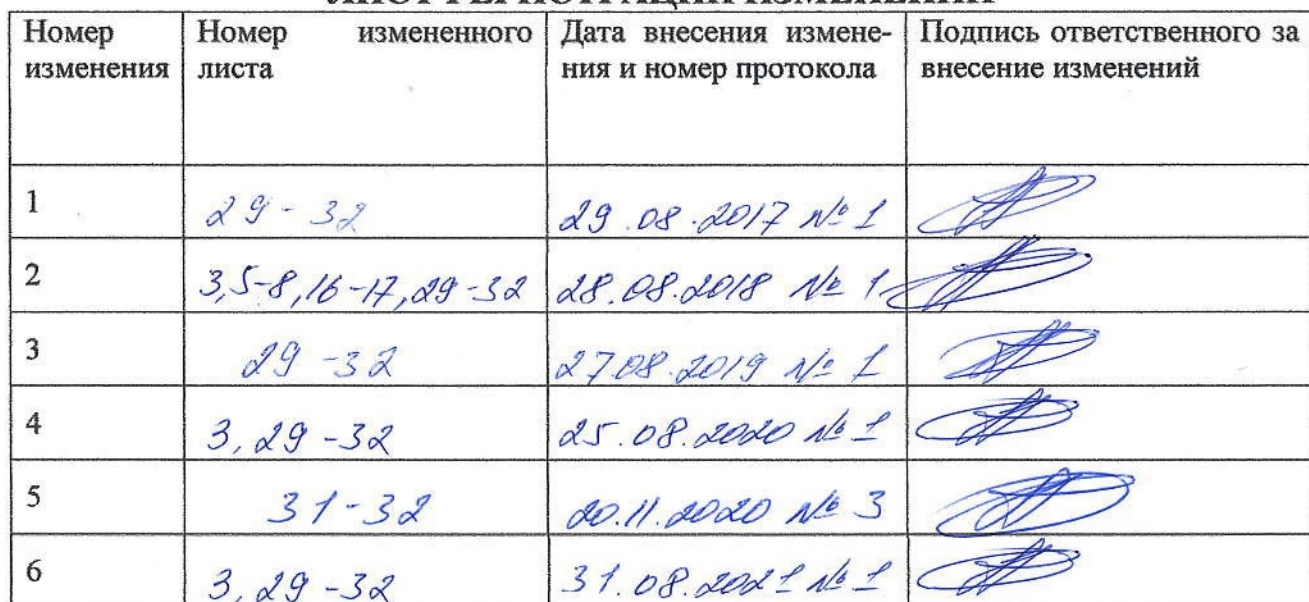 ЛИСТ РЕГИСТРАЦИИ ИЗМЕНЕНИЙ
Номер изменения Номер измененного листа Дата внесения измене-ния и номер протокола Подпись ответственного за внесение изменений
1 29-32 29.08.2017 № 1
2 3,5-8,16-17,29-32 28.08.2018 № 1
3 29-32 27.08.2019 № 1
4 3,29-32 25.08.2020 № 1
5 31-32 20.11.2020 № 3
6 3,29-32 31.08.2021 № 1